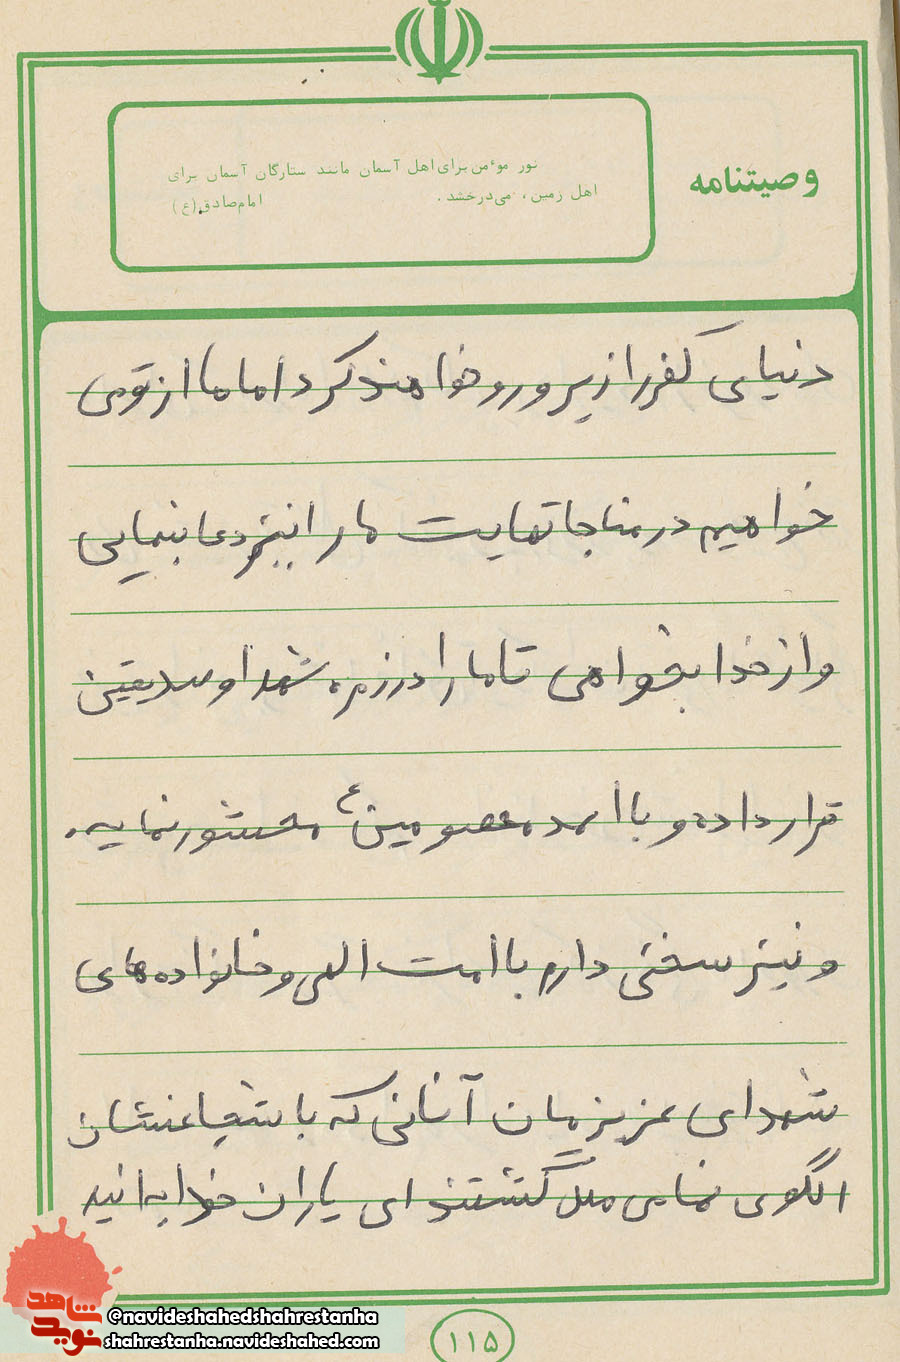 وصیتنامه
نور موٴمن برای اهل آسمان مانند ستارگان آسمان برای
اهل زمین، می‌درخشد.
امام‌صادق(ع)
دنیای کفر را زیر و رو خواهند کرد اما ما از تو می
خواهیم در مناجاتهایت ما را نیز دعا بنمایی
و از خدا بخواهی تا ما را در زمره شهدا و صدیقین
قرار داده و با ائمه معصومین ع محشور نماید.
و نیز سخنی دارم با امت الهی و خانواده‌های
شهدای عزیزمان آنانی که با شجاعتشان
الگوی تمامی ملل گشتند ای یاران خدا بدانید
شاهد
نوید
©navideshahedshahrestanha
shahrestanha.navideshahed.com
۱۱۵